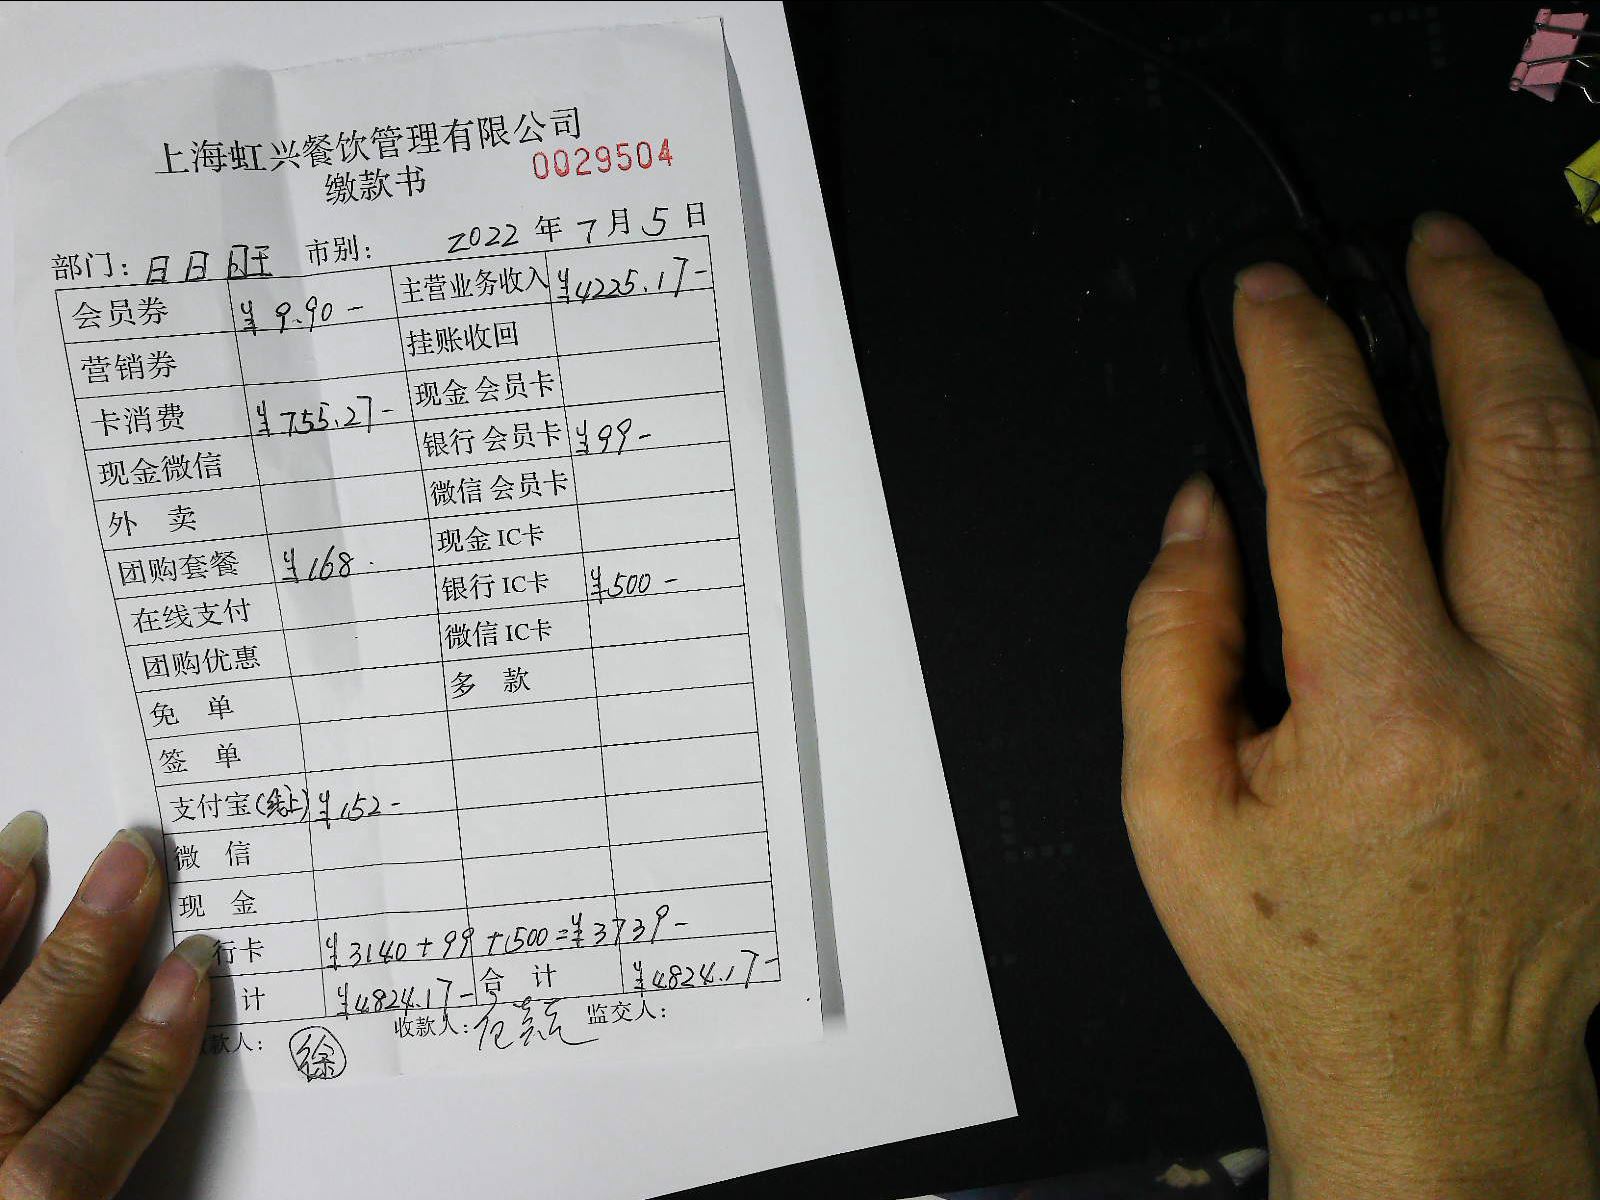 上海虹兴餐饮管理有限公司
缴款书 0029504
部门：日日旺 市别： 2022年7月5日
会员券 ¥9.90- 主营业务收入 ¥4225.17-
营销券 挂账收回
卡消费 ¥755.27- 现金会员卡
现金微信 银行会员卡 ¥99-
外卖 微信会员卡
团购套餐 ¥168- 现金IC卡
在线支付 银行IC卡 ¥500-
团购优惠 微信IC卡
免单 多款
签单
支付宝(线上) ¥152-
微信
现金
行卡 ¥3140+99+500=¥3739-
计 ¥4824.17- 合计 ¥4824.17-
款人：徐 收款人： 监交人：